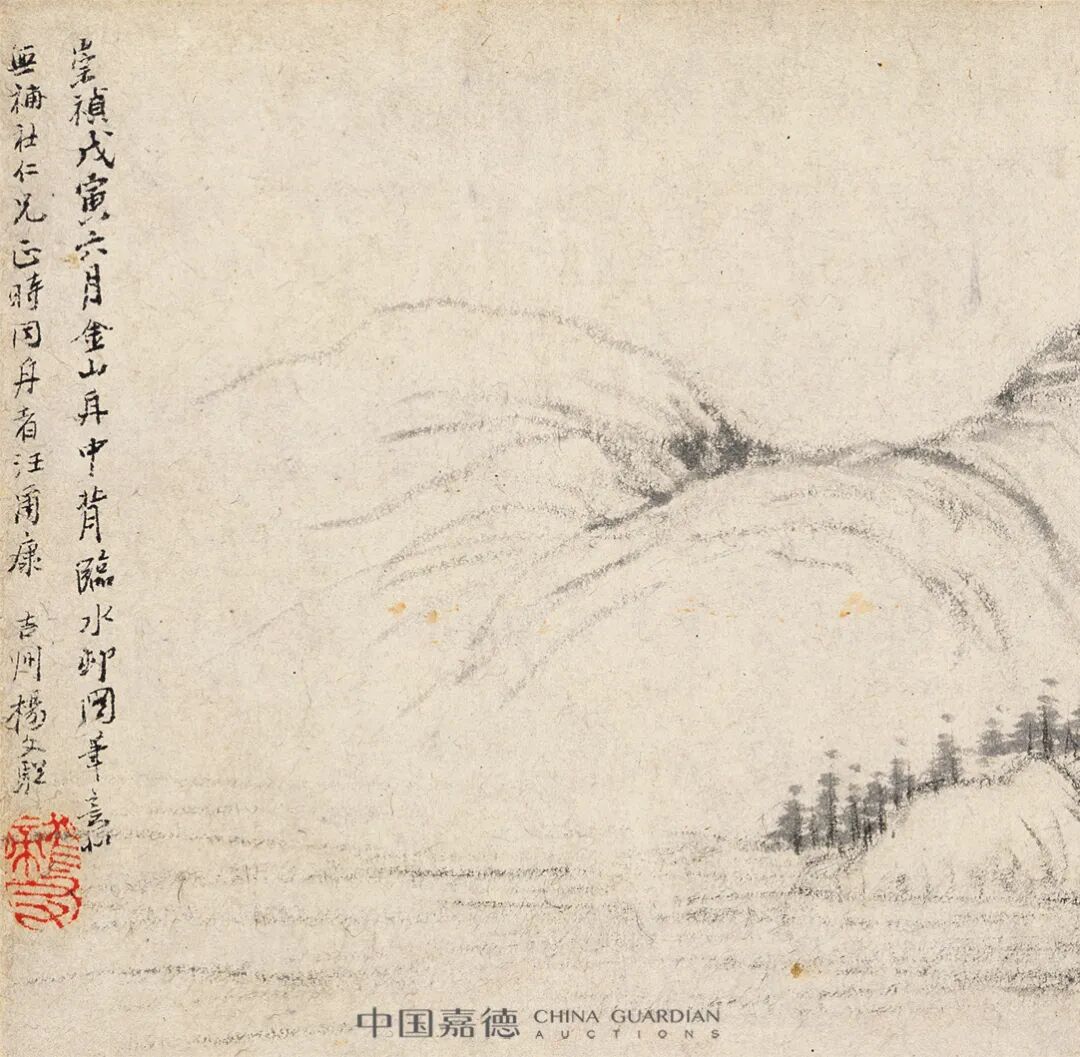 崇禎戊寅六月金山舟中背臨水邨圖筆意似
無補社仁兄正時同舟者汪爾康 吉州楊文驄
龍友
中国嘉德 CHINA GUARDIAN
AUCTIONS